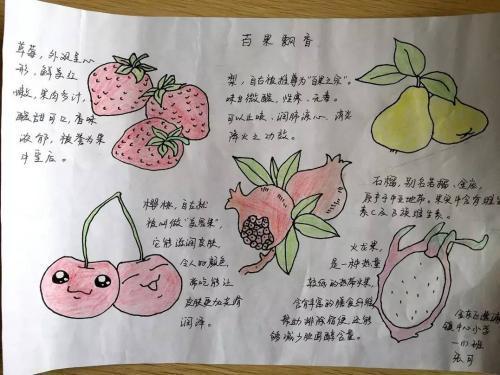 百果飘香
草莓，外观呈心
形，鲜美红
嫩，果肉多汁，
酸甜可口，香味
浓郁，被誉为果
中皇后。
梨，自古被推尊为“百果之宗”。
味甘微酸，性寒，无毒。
可以止咳，润肺凉心，消炎
降火之功效。
石榴，别名若榴、金庞，
原产于中亚地带。果实中含有维生
素C及B族维生素。
樱桃，自古就
被叫做“美容果”，
它能滋润皮肤，
令人的颜色，
常吃能让
皮肤更加光滑
润泽。
火龙果，
是一种热量
较低的热带水果，
含有丰富的膳食纤维，
帮助排除宿便，还能
够减少胆固醇含量。
镇中心小学
一(1)班
张可